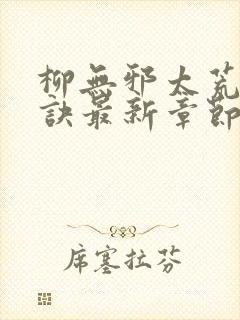 柳無邪太荒
訣最新章節
席塞拉芬